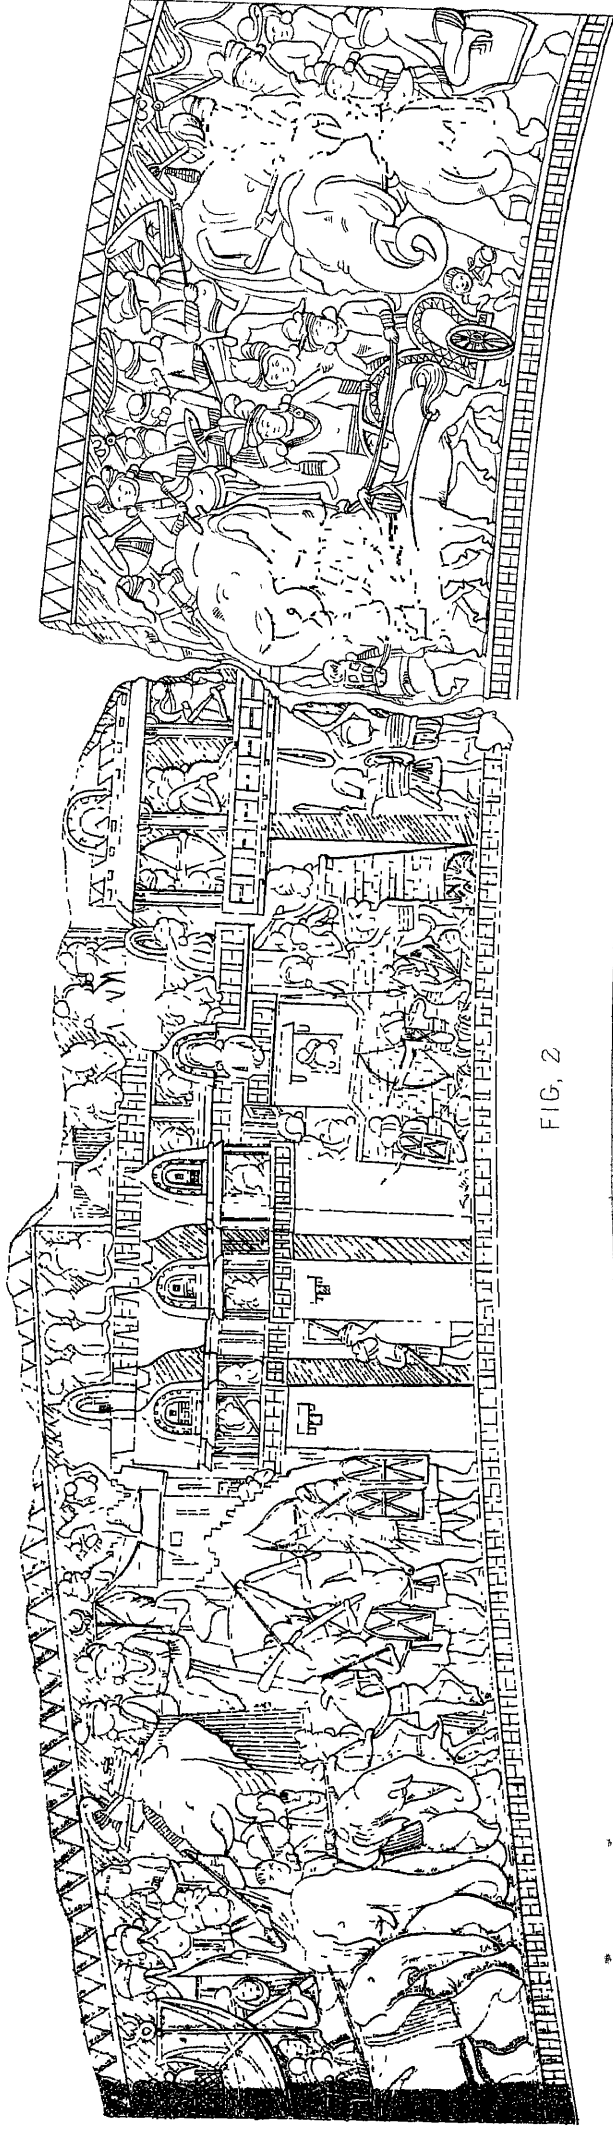 FIG, 2